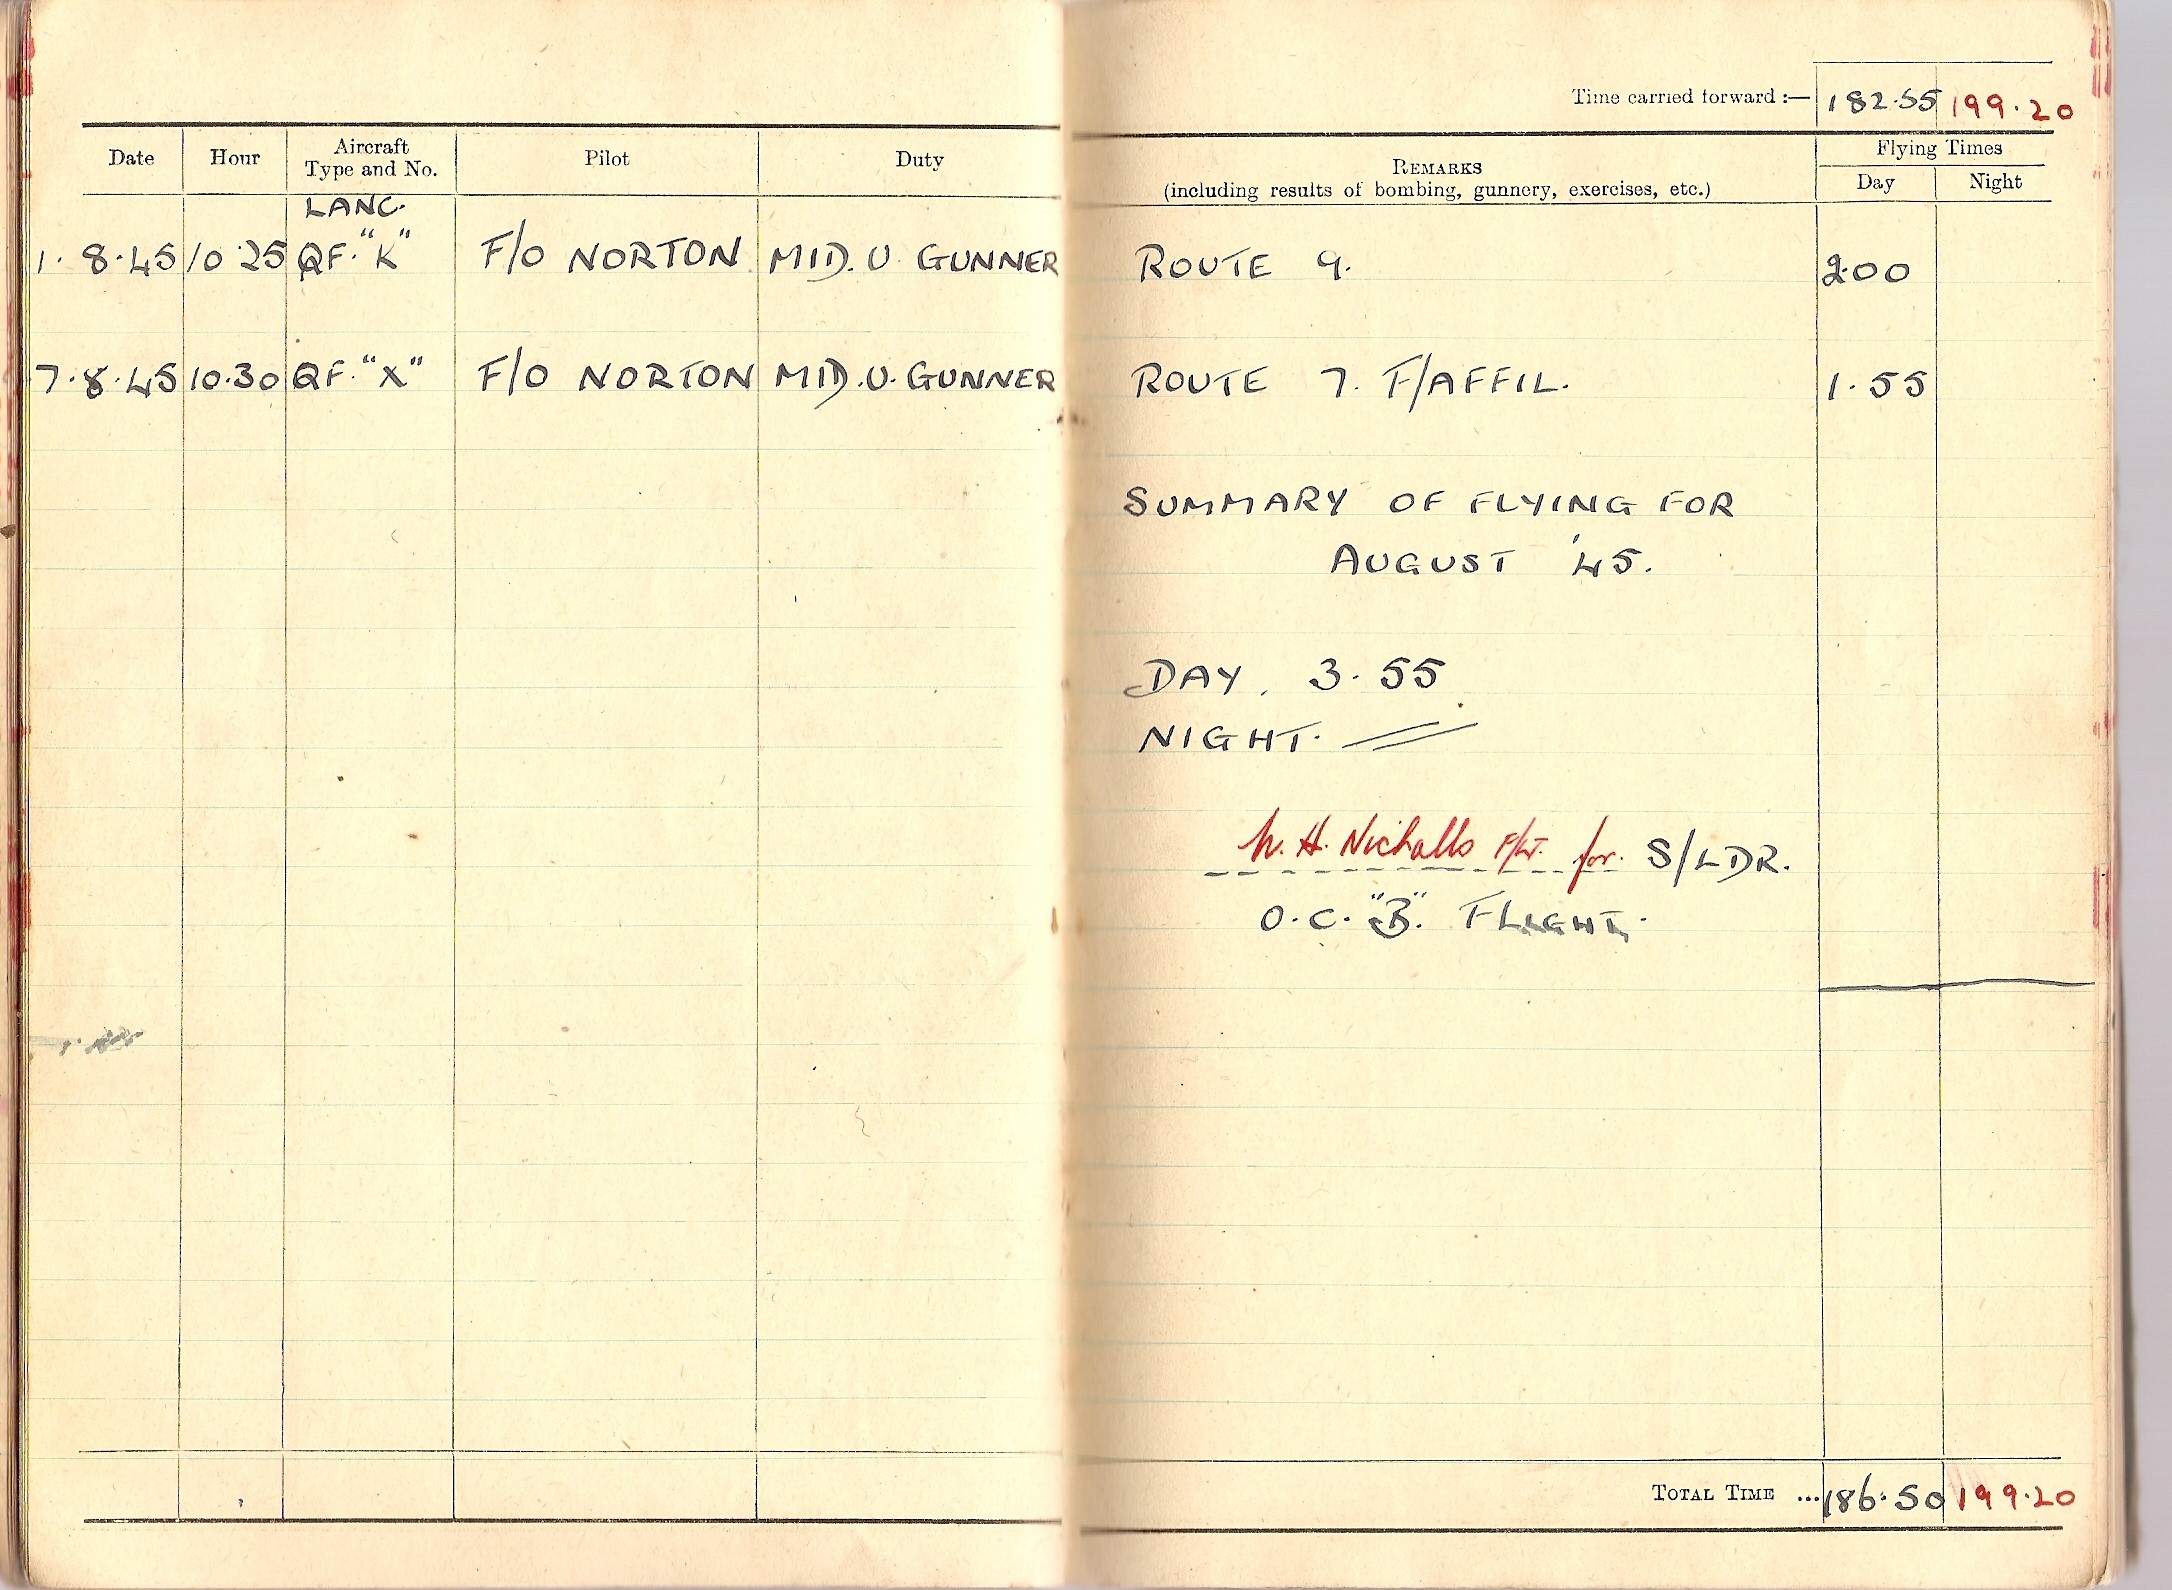 Time carried forward :— 182.55 199.20
Date Hour Aircraft Type and No. Pilot Duty REMARKS (including results of bombing, gunnery, exercises, etc.) Flying Times Day Night
LANC.
1.8.45 10.25 QF."K" F/O NORTON MID. U. GUNNER ROUTE 9. 2.00
7.8.45 10.30 QF."X" F/O NORTON MID.U. GUNNER ROUTE 7. F/AFFIL. 1.55
SUMMARY OF FLYING FOR
AUGUST '45.
DAY. 3.55
NIGHT. //
W. H. Nicholls F/Lt. for. S/LDR.
O.C. "B". FLIGHT.
TOTAL TIME ... 186.50 199.20